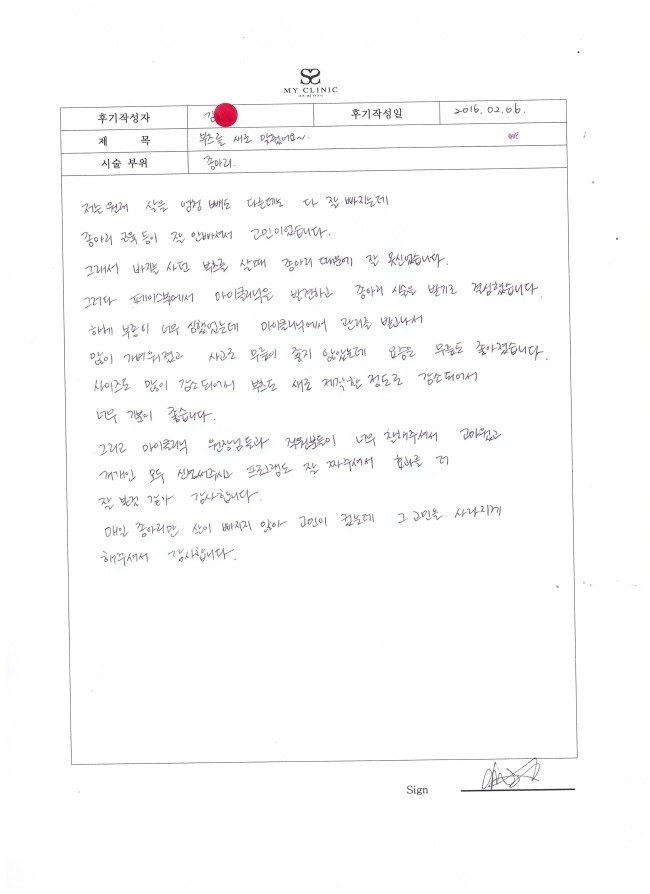 MY CLINIC
후기작성자 김 후기작성일 2016.02.06.
제 목 부츠를 새로 맞췄어요~
시술 부위 종아리.
저는 원래 살을 엄청 빼도 다른데는 다 잘 빠지는데
종아리 근육 등이 잘 안빠져서 고민이었습니다.
그래서 바지를 사던 부츠를 살때 종아리 때문에 잘 못신었습니다.
그러다 페이스북에서 마이클리닉을 발견하고 종아리 시술을 받기로 결심했습니다.
하체 부종이 너무 심했었는데 마이클리닉에서 관리를 받고나서
많이 가벼워졌고 사고로 무릎이 좋지 않았는데 요즘은 무릎도 좋아졌습니다.
사이즈도 많이 감소되어서 부츠도 새로 제작할 정도로 감소되어서
너무 기분이 좋습니다.
그리고 마이클리닉 원장님들과 직원분들이 너무 친해주셔서 고마웠고
개개인 모두 신경써주시고 프로그램도 잘 짜주셔서 효과를 더
잘 본것 같아 감사합니다.
매일 종아리만 살이 빠지지 않아 고민이 컸는데 그 고민을 사라지게
해주셔서 감사합니다.
Sign